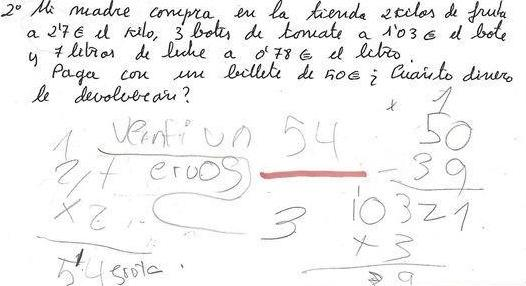 2º Mi madre compra en la tienda 2 kilos de fruta
a 2'7 € el kilo, 3 botes de tomate a 1'03 € el bote
y 7 litros de leche a 0'78 € el litro.
Paga con un billete de 50 € ¿Cuánto dinero
le devolverán?
1 Veinti un 54 x 1 50
2,7 eruos - 39
x 2 3 103 21
x 3
5'4